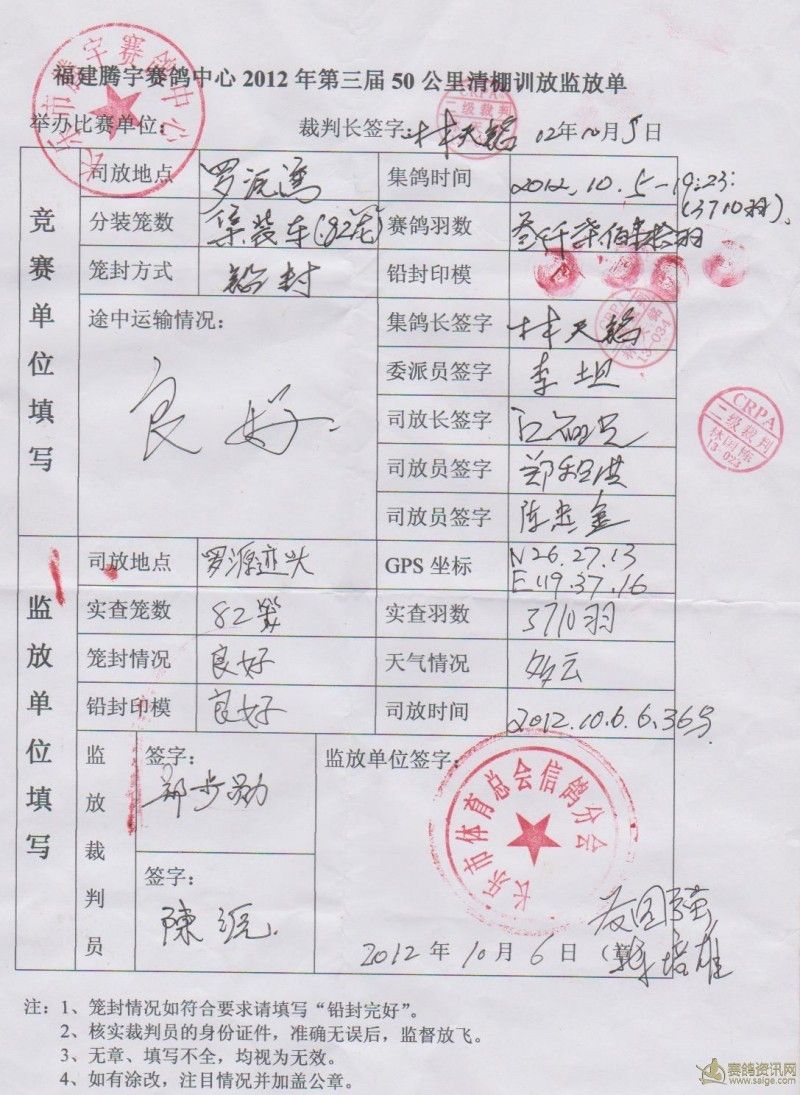 福建腾宇赛鸽中心2012年第三届50公里清棚训放监放单
长乐市腾宇赛鸽中心
举办比赛单位： 裁判长签字：林天铭 12年10月5日
CRPA
二级裁判
竞赛单位填写
司放地点 罗源湾 集鸽时间 2012.10.5-19:23:
(3710羽).
分装笼数 集装车(82笼) 赛鸽羽数 叁仟柒佰壹拾羽
笼封方式 铅封 铅封印模
途中运输情况： 良好.
集鸽长签字 林天铭
13-034
委派员签字 李坦
司放长签字
CRPA
二级裁判
林国栋
13-023
司放员签字
司放员签字 陈忠金
监放单位填写
司放地点 罗源迹头 GPS坐标 N26.27.13
E119.37.16
实查笼数 82笼 实查羽数 3710羽
笼封情况 良好 天气情况 多云
铅封印模 良好 司放时间 2012.10.6.6.36分
监放裁判员
签字： 郑步勋
签字： 陳
监放单位签字：
长乐市体育总会信鸽分会
2012年10月6日（章）
注：1、笼封情况如符合要求请填写“铅封完好”。
2、核实裁判员的身份证件，准确无误后，监督放飞。
3、无章、填写不全，均视为无效。
4、如有涂改，注目情况并加盖公章。
赛鸽资讯网
www.saige.com